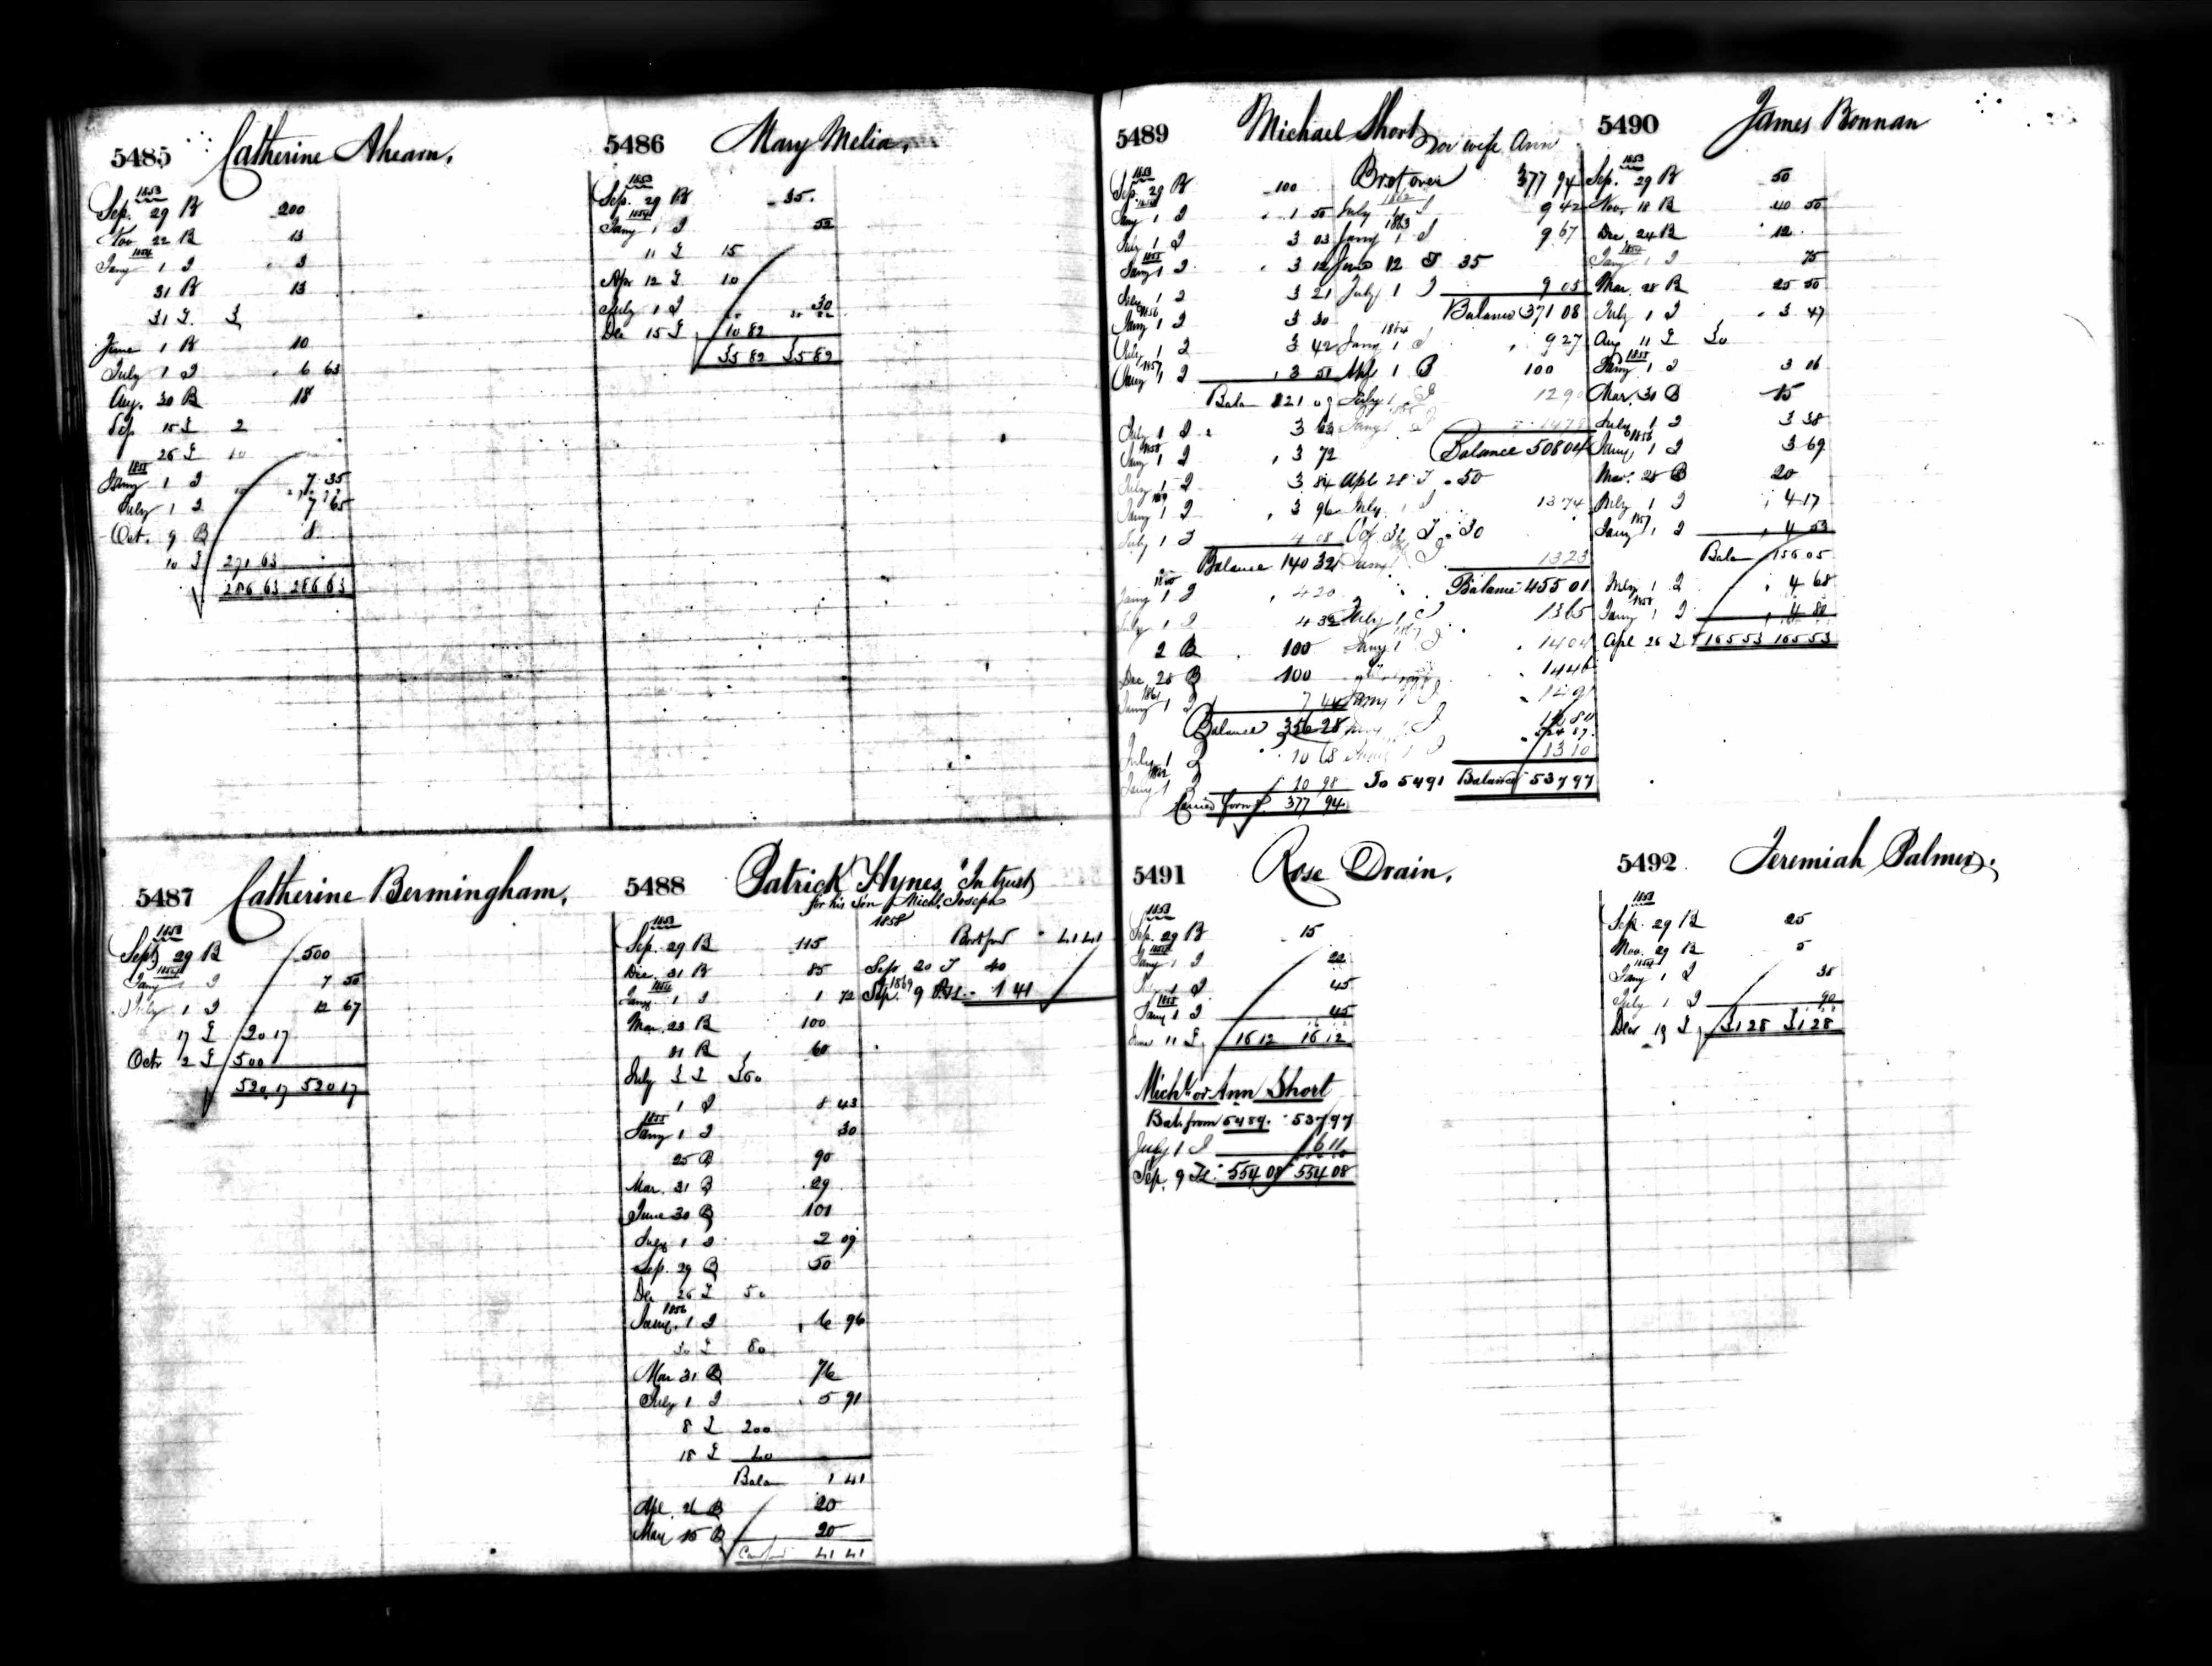 5485 Catherine Ahearn.
1853
Sep. 29 B 200
Nov 22 B 13
1854
Jany 1 I 3
31 B 13
31 I. 3
June 1 B 10
July 1 I 6 63
Aug. 30 B 18
Sep 15 I 2
26 I 10
1855
Jany 1 I 7 35
July 1 I 7 65
Oct. 9 B 8
10 I 271 63
286 63 286 63
5486 Mary Melia.
1853
Sep. 29 B 35.
1854
Jany 1 I 52
11 I 15
Apr 12 I 10
July 1 I 30
Dec 15 I 10 82
35 82 35 82
5487 Catherine Bermingham.
1853
Sept 29 B 500
1854
Jany 1 I 7 50
July 1 I 12 67
17 I 20 17
Octr 2 I 500
520 17 520 17
5488 Patrick Hynes "In trust
for his son Michl. Joseph
1853
Sep. 29 B 115
Dec. 31 B 85
1854
Jany 1 I 1 72
Mar. 23 B 100
31 B 60
July 3 I 360
1 I 8 43
1855
Jany 1 I 30
25 B 90
Mar. 31 B 29
June 30 B 101
July 1 I 2 09
Sep. 29 B 50
Dec 26 I 50
1856
Jany. 1 I 6 96
30 I 80
Mar 31 B 76
July 1 I 5 91
8 I 200
18 I 40
Balan 1 41
Apl. 26 B 20
May 15 B 20
41 41
1858
Brotford 41 41
Sep 20 I 40
1869
Sep. 9 1 41
5489 Michael Short or wife Ann
1853
Sep. 29 B 100
Jany 1 I 1 50
July 1 I 3 03
1855
Jany 1 I 3 12
July 1 I 3 21
1856
Jany 1 I 3 30
July 1 I 3 42
1857
Jany 1 I 3 51
Balan 121 09
July 1 I 3 63
1858
Jany 1 I 3 72
July 1 I 3 84
1859
Jany 1 I 3 96
July 1 I 4 08
Balance 140 32
1860
Jany 1 I 4 20
July 1 I 4 32
2 B 100
Dec 28 B 100
1861
Jany 1 I 7 44
Balance 356 28
July 1 I 10 68
1862
Jany 1 I 10 98
Carried forwd. 377 94
Brot over 377 94
1862
July 1 I 9 42
1863
Jany 1 I 9 67
June 12 I 35
July 1 I 9 05
Balance 371 08
1864
Jany 1 I 9 27
Apl 1 B 100
July 1 I 12 90
Jany 1 I 14 79
Balance 508 04
Apl 28 I 50
July 1 I 13 74
Oct 31 I 30
Jany 1 I 13 23
Balance 455 01
July 1 I 13 65
Jany 1 I 14 04
14 46
Jany 1 I
524 87
13 10
To 5491 Balance 537 97
5490 James Bonnan
1853
Sep. 29 B 50
Nov. 18 B 40 50
Dec 24 B 12
1854
Jany 1 I 75
Mar. 28 B 25 50
July 1 I 3 47
Aug 11 I 30
1855
Jany 1 I 3 06
Mar. 30 B 15
July 1 I 3 38
1856
Jany 1 I 3 69
Mar. 28 B 20
July 1 I 4 17
1857
Jany 1 I 4 53
Balan 156 05
July 1 I 4 68
1858
Jany 1 I 4 80
Apl 26 I 165 53 165 53
5491 Rose Drain.
1853
Sep. 29 B 15
1854
Jany 1 I 22
July 1 I 45
1855
Jany 1 I 45
June 11 I 16 12 16 12
Michl or Ann Short
Bal. from 5489. 537 97
July 1 I 16 11
Sep. 9 554 08 554 08
5492. Jeremiah Palmer.
1853
Sep. 29 B 25
Nov. 29 B 5
1854
Jany 1 I 38
July 1 I 90
Decr 19 I 31 28 31 28